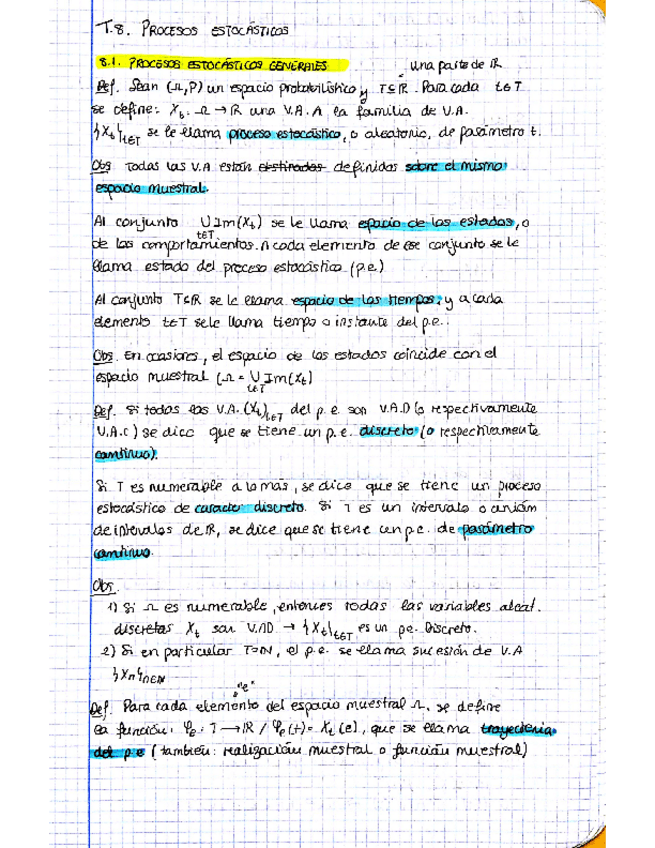 T.8. PROCESOS ESTOCÁSTICOS
8.1. PROCESOS ESTOCÁSTICOS GENERALES
una parte de ℝ
Def. Sean (Ω,P) un espacio probabilístico y T⊆ℝ. Para cada t∈T
se define: Xt: Ω → ℝ una V.A. A la familia de V.A.
{Xt}t∈T se le llama proceso estocástico, o aleatorio, de parámetro t.
Obs Todas las V.A están definidas sobre el mismo
espacio muestral.
Al conjunto ∪ Im(Xt) se le llama espacio de los estados, o
t∈T
de los comportamientos. A cada elemento de ese conjunto se le
llama estado del proceso estocástico (p.e)
Al conjunto T⊆ℝ se le llama espacio de los tiempos, y a cada
elemento t∈T se le llama tiempo o instante del p.e..
Obs. En ocasiones, el espacio de los estados coincide con el
espacio muestral (Ω = ∪ Im(Xt)
t∈T
Def. Si todas las V.A. (Xt)t∈T del p.e. son V.A.D (o respectivamente
V.A.C) se dice que se tiene un p.e. discreto (o respectivamente
continuo).
Si T es numerable a lo más, se dice que se tiene un proceso
estocástico de caracter discreto. Si T es un intervalo o unión
de intervalos de ℝ, se dice que se tiene un p.e. de parámetro
continuo.
Obs.
1) Si Ω es numerable, entonces todas las variables aleat.
discretas Xt son V.AD → {Xt}t∈T es un pe. Discreto.
2) Si en particular T=ℕ, el p.e. se llama sucesión de V.A
{Xn}n∈ℕ
"e"
Def. Para cada elemento del espacio muestral Ω, se define
la función: φe: T → ℝ / φe(t) = Xt(e), que se llama trayectoria
del p.e (también: realización muestral o función muestral)